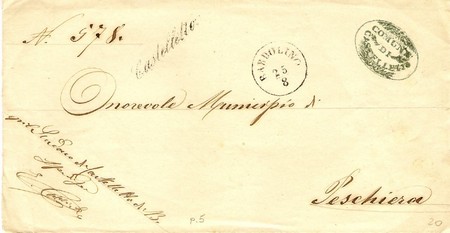 N. 578.
Castelletto.
BARDOLINO
5
3
COMUNE
DI
CASTELLETTO
Onorevole Municipio di
Peschiera
di Castelletto di B.
p.5
20